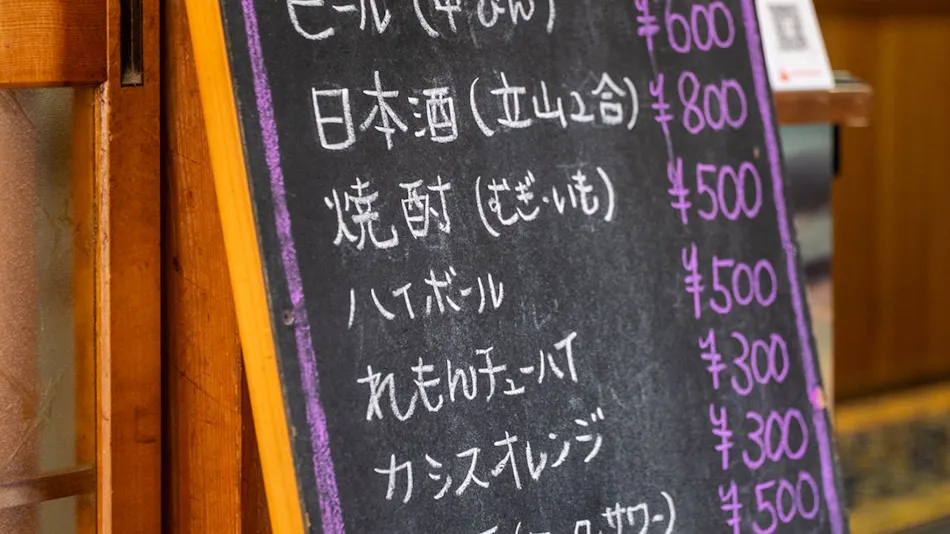 ビール (中びん) ¥600
日本酒 (立山2合) ¥800
焼酎 (むぎ・いも) ¥500
ハイボール ¥500
れもんチューハイ ¥300
カシスオレンジ ¥300
サワー) ¥500